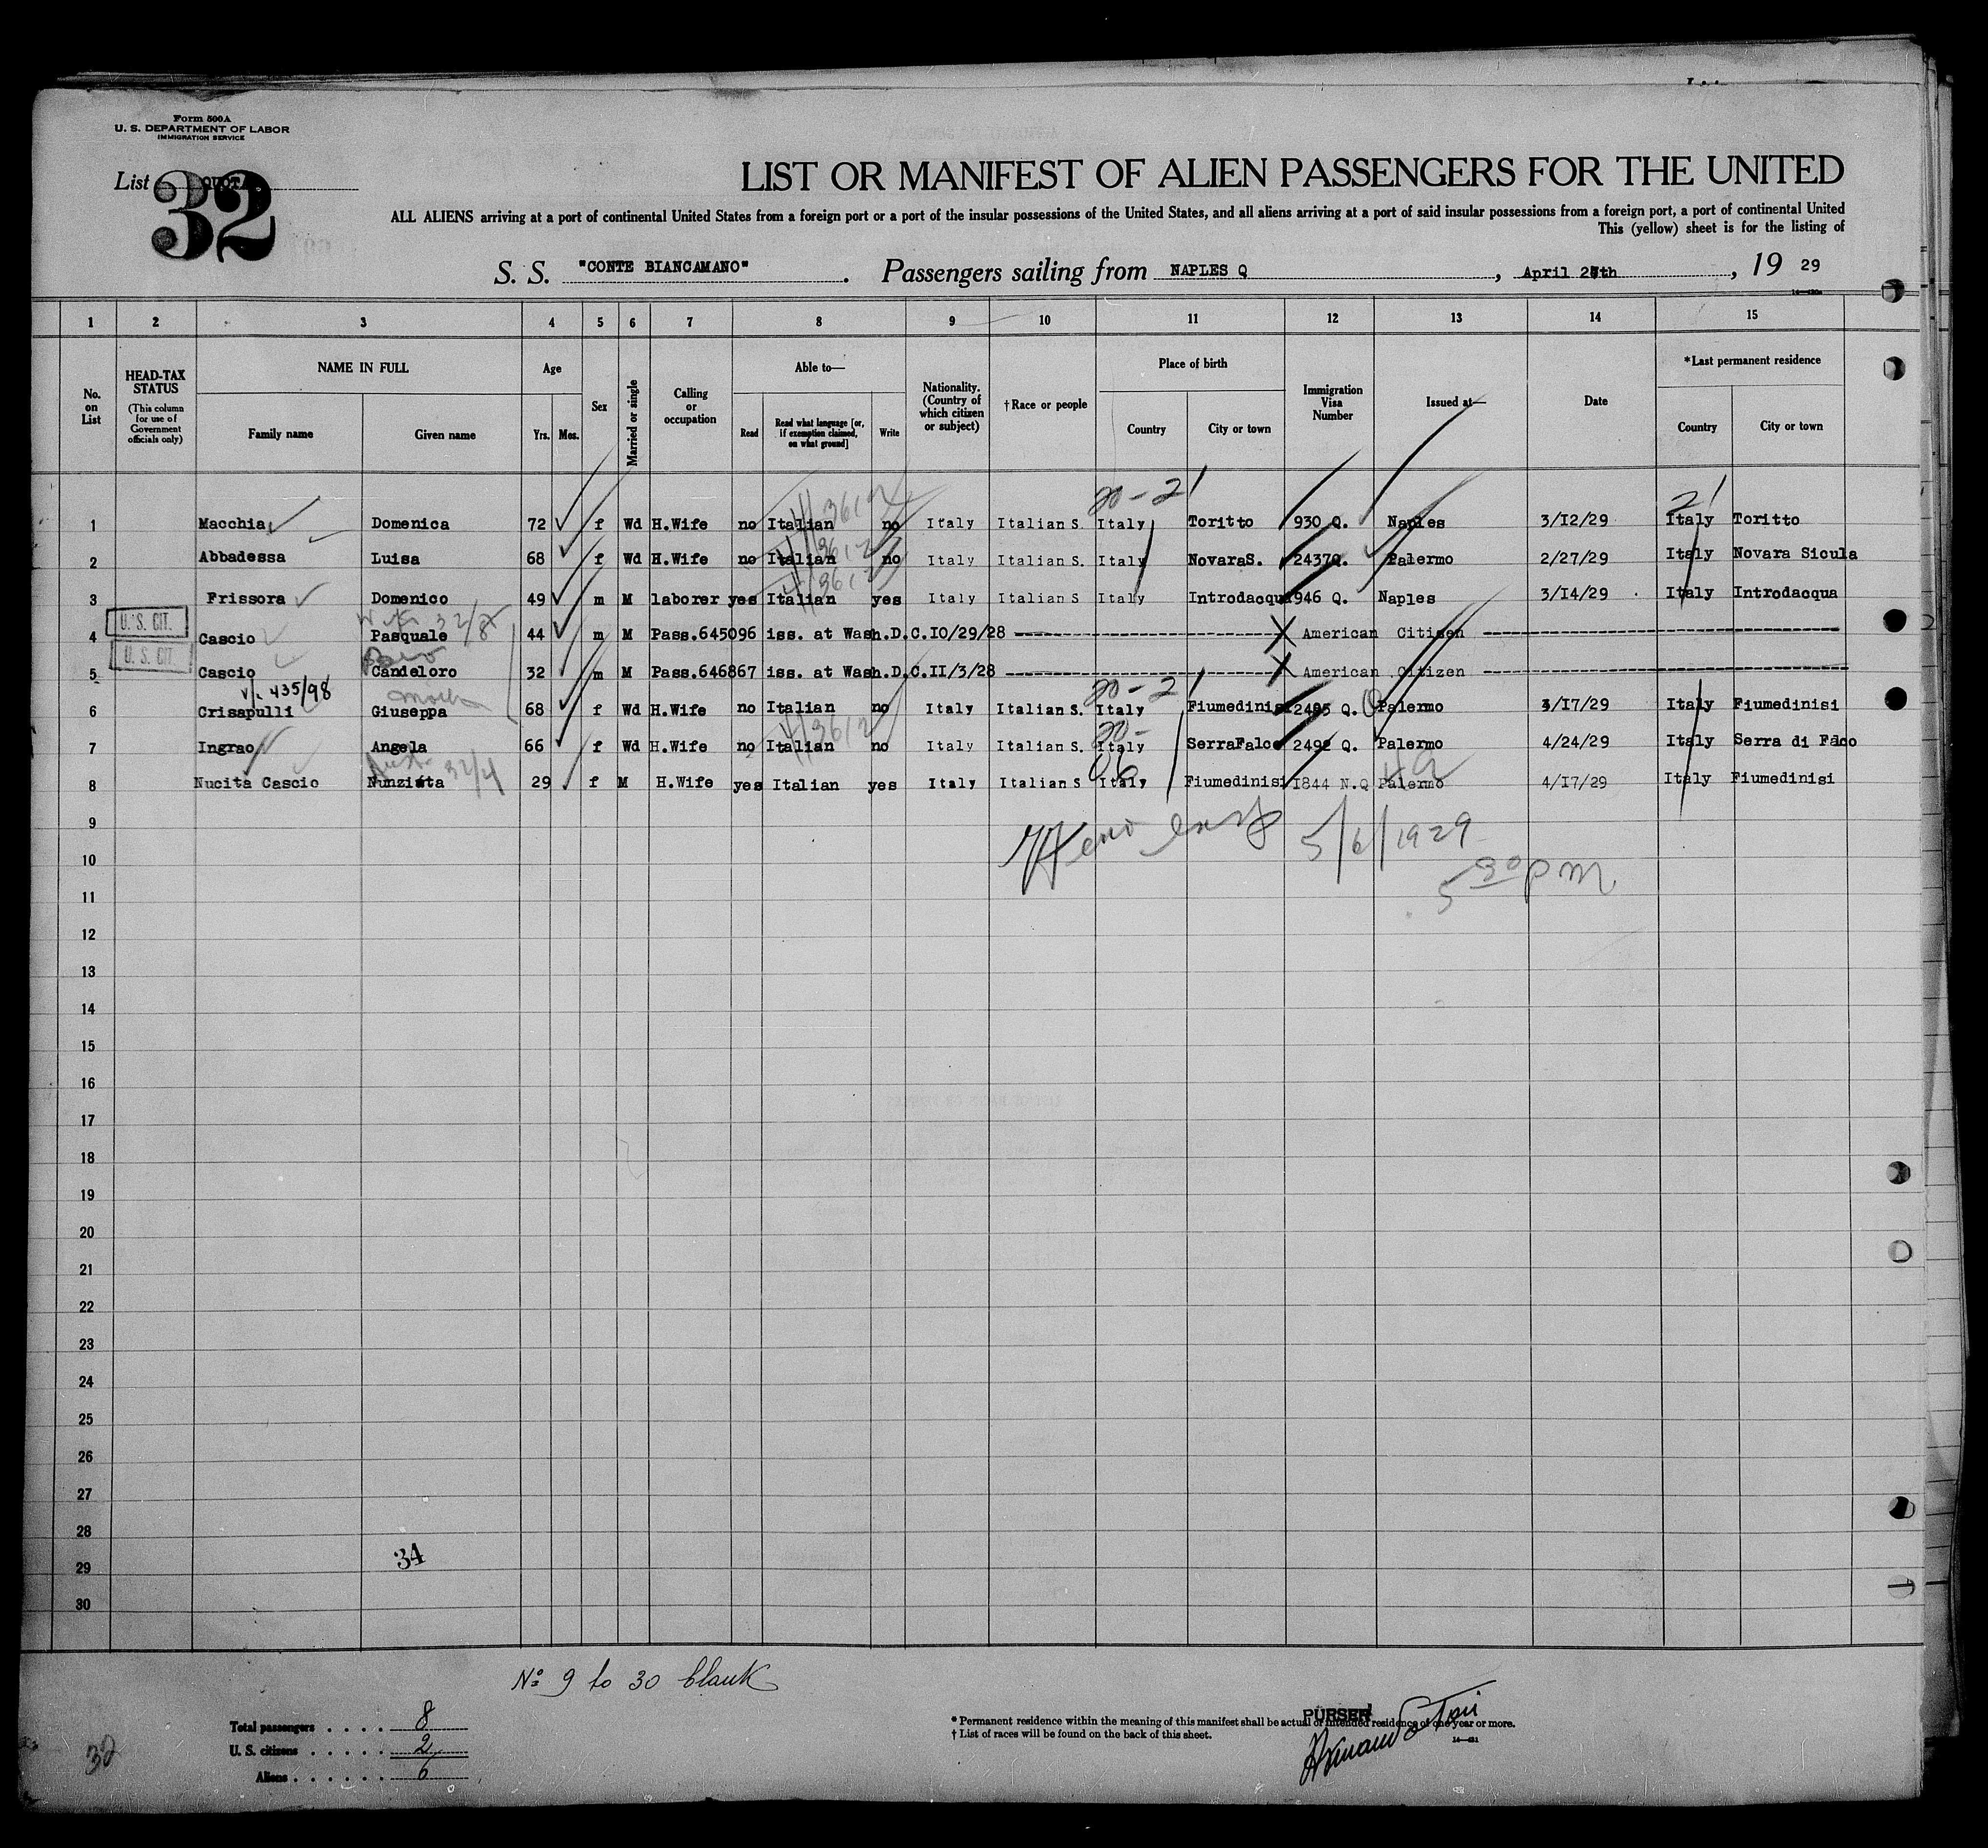 Form 500A
U. S. DEPARTMENT OF LABOR
IMMIGRATION SERVICE
List QUOTA
32
LIST OR MANIFEST OF ALIEN PASSENGERS FOR THE UNITED
ALL ALIENS arriving at a port of continental United States from a foreign port or a port of the insular possessions of the United States, and all aliens arriving at a port of said insular possessions from a foreign port, a port of continental United
This (yellow) sheet is for the listing of
S. S. "CONTE BIANCAMANO". Passengers sailing from NAPLES Q, April 2 th, 19 29
1 2 3 4 5 6 7 8 9 10 11 12 13 14 15
No. on List
HEAD-TAX STATUS (This column for use of Government officials only)
NAME IN FULL
Family name Given name
Age
Yrs. Mos.
Sex
Married or single
Calling or occupation
Able to—
Read
Read what language [or, if exemption claimed, on what ground]
Write
Nationality. (Country of which citizen or subject)
†Race or people
Place of birth
Country City or town
Immigration Visa Number
Issued at—
Date
*Last permanent residence
Country City or town
20-21 21
1 Macchia Domenica 72 f Wd H.Wife no Italian no Italy Italian S. Italy Toritto 930 Q. Naples 3/12/29 Italy Toritto
2 Abbadessa Luisa 68 f Wd H.Wife no Italian no Italy Italian S. Italy NovaraS. 2437Q. Palermo 2/27/29 Italy Novara Sicula
3 Frissora Domenico 49 m M laborer yes Italian yes Italy Italian S Italy Introdacqua 946 Q. Naples 3/14/29 Italy Introdacqua
U. S. CIT.
32/8
4 Cascio Pasquale 44 m M Pass.645096 iss. at Wash.D.C.10/29/28 American Citizen
U. S. CIT.
5 Cascio Candeloro 32 m M Pass.646867 iss. at Wash.D.C.11/3/28 American Citizen
435/98
20-21
6 Crisapulli Giuseppa 68 f Wd H.Wife no Italian no Italy Italian S. Italy Fiumedinisi 2495 Q. Palermo 3/17/29 Italy Fiumedinisi
20-
7 Ingrao Angela 66 f Wd H.Wife no Italian no Italy Italian S. Italy SerraFalco 2492 Q. Palermo 4/24/29 Italy Serra di Falco
32/4
06
8 Nucita Cascio Nunziata 29 f M H.Wife yes Italian yes Italy Italian S Italy Fiumedinisi 1844 N.Q Palermo 4/17/29 Italy Fiumedinisi
9
5/6/1929
10
5 30 pm
11
12
13
14
15
16
17
18
19
20
21
22
23
24
25
26
27
28
29
34
30
No 9 to 30 blank
Total passengers . . . . 8
U. S. citizens . . . . . 2
Aliens . . . . . . 6
32
* Permanent residence within the meaning of this manifest shall be actual or intended residence of one year or more.
† List of races will be found on the back of this sheet.
PURSER